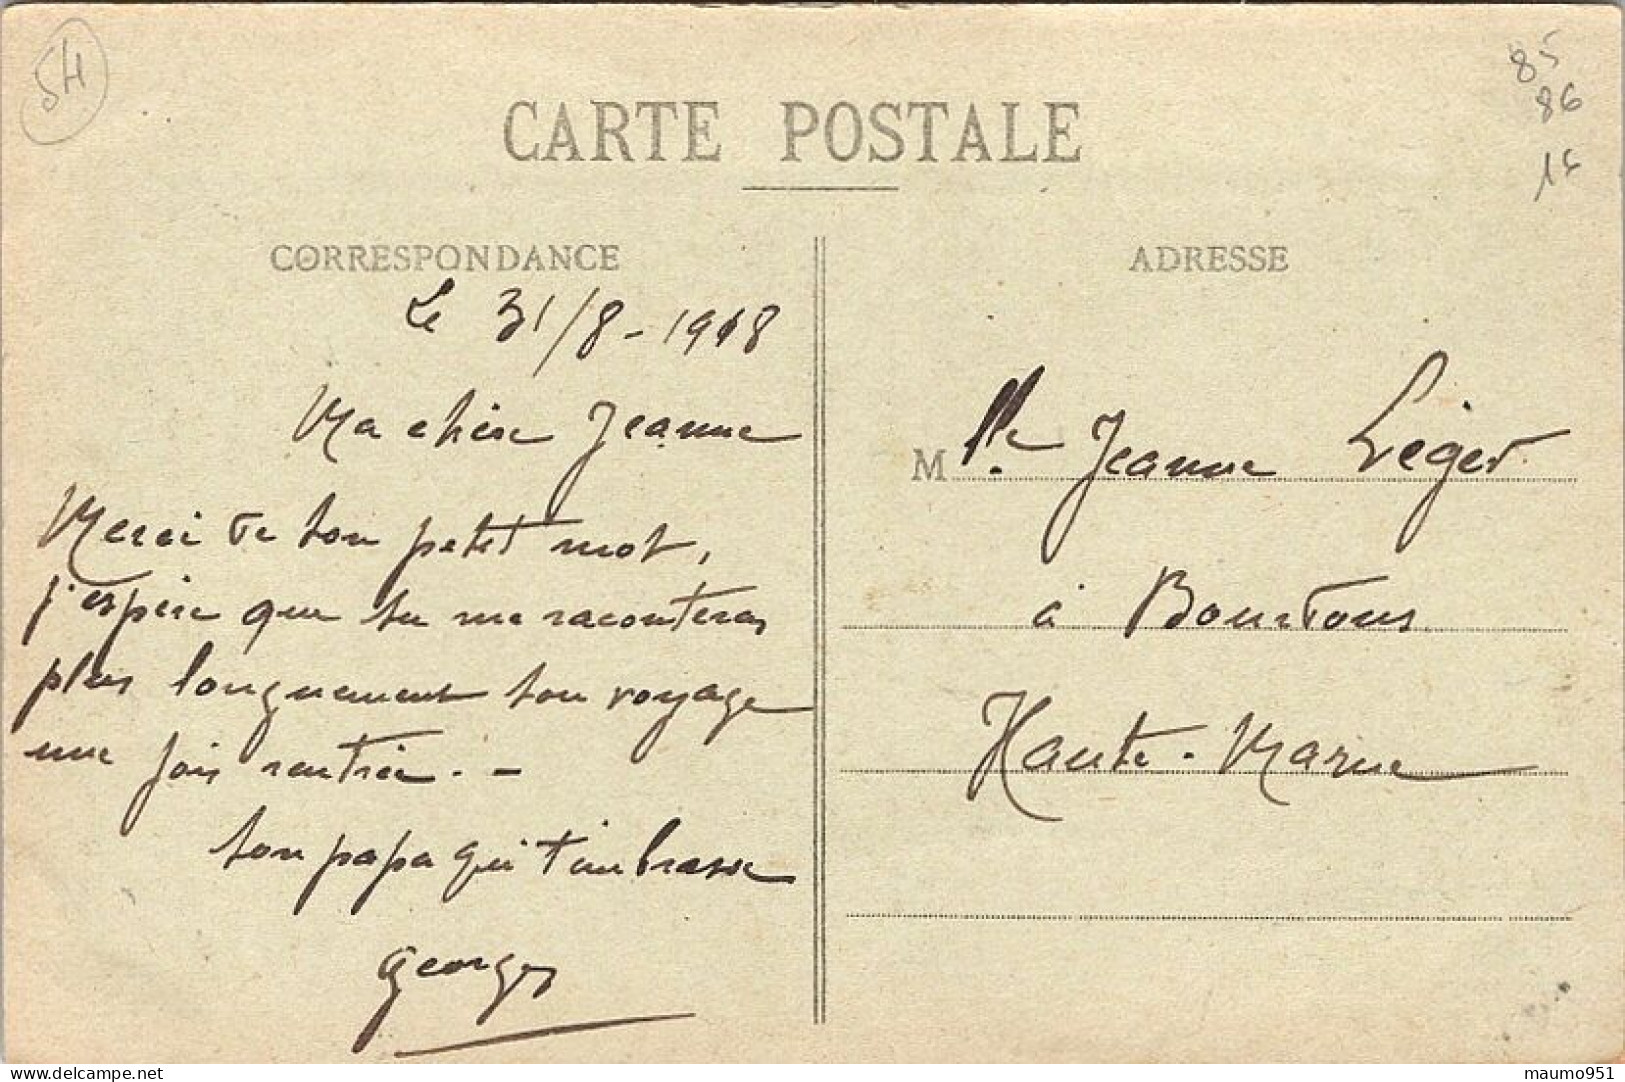 54
85
86
CARTE POSTALE
CORRESPONDANCE
Le 31/8-1918
Ma chère Jeanne
Merci de ton petit mot,
j'espère que tu me raconteras
plus longuement ton voyage
une fois rentrée. -
ton papa qui t'embrasse
Georges
ADRESSE
Mlle Jeanne Léger
à Bourdons
Haute-Marne
delcampe.net
maumo951